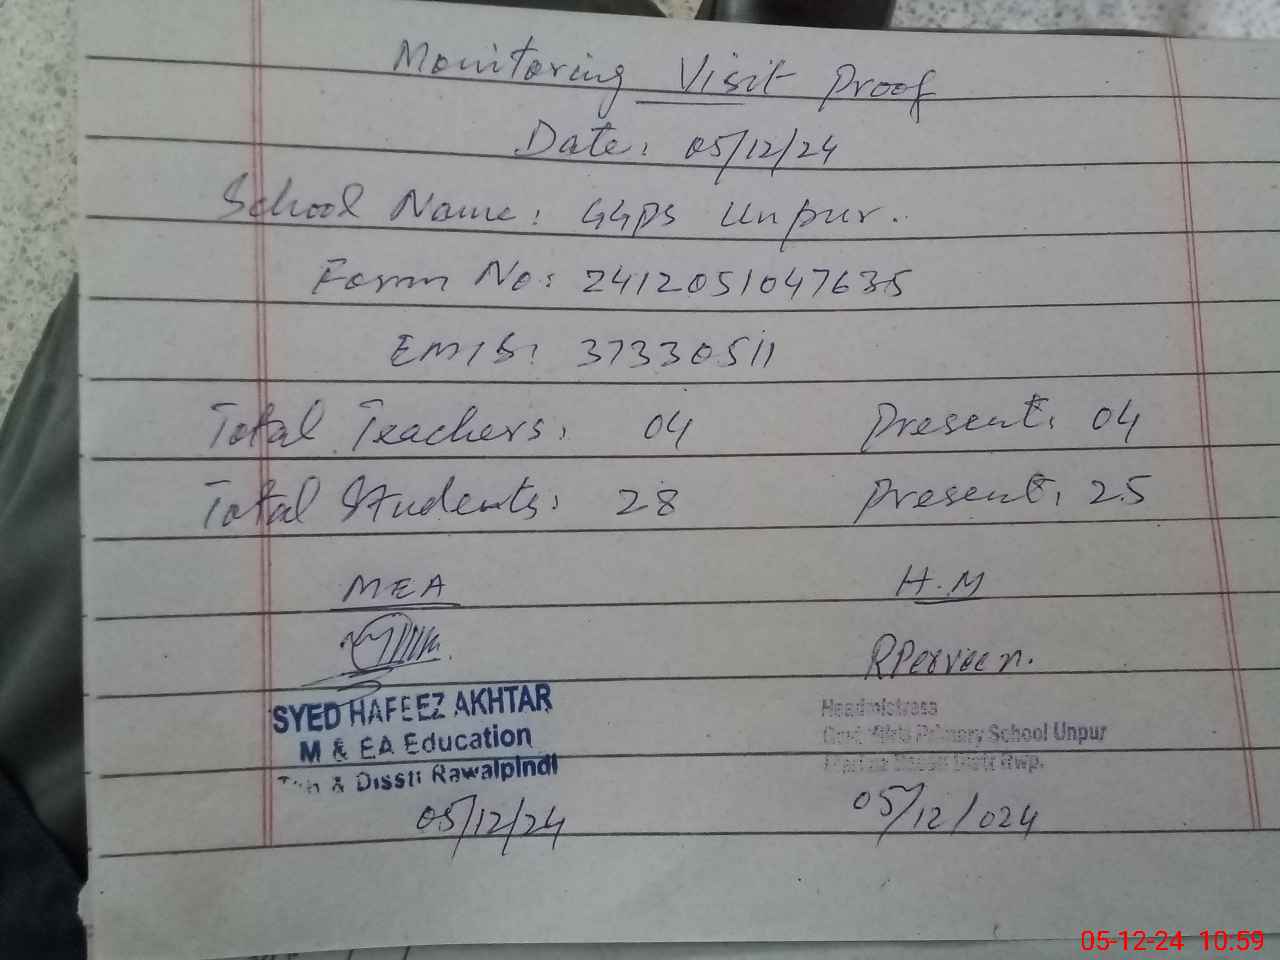 Monitoring Visit Proof
Date: 05/12/24
School Name: GGPS Unpur.
Form No: 2412051047635
EMIS: 37330511
Total Teachers: 04 Present: 04
Total Students: 28 Present: 25
MEA H.M
RPerveen.
SYED HAFEEZ AKHTAR
M & EA Education
& Disstt Rawalpindi
Headmistress
Primary School Unpur
Rwp.
05/12/24 05/12/024
05-12-24 10.59